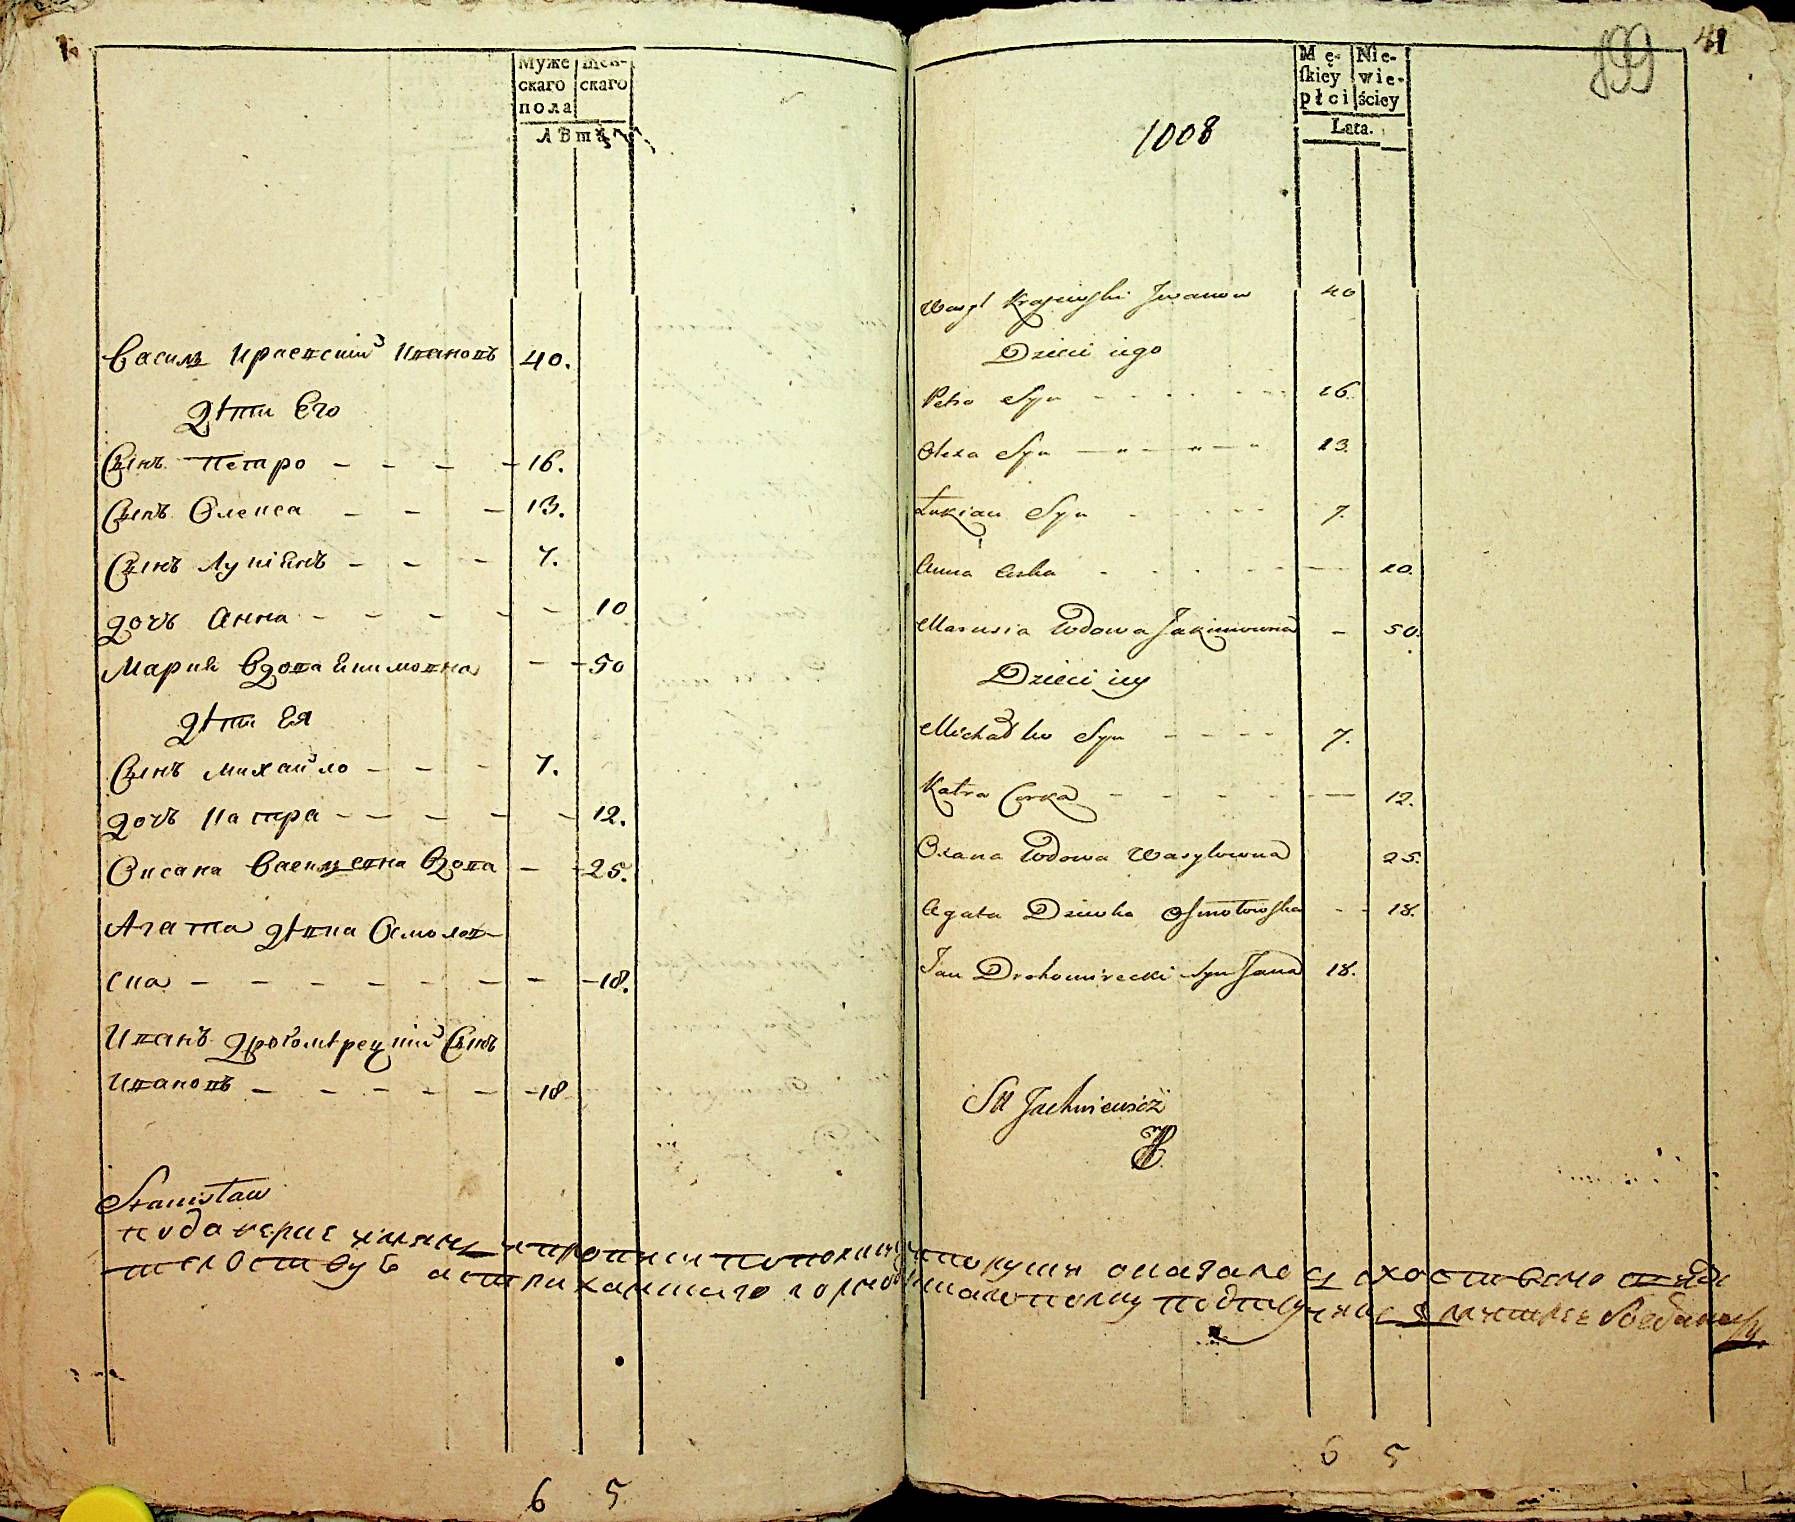 Муже скаго пола
скаго
Лѣтъ
Василь Краевскій Ивановъ 40.
Дѣти Его
Сынъ Петро - - - - 16.
Сынъ Олекса - - - 13.
Сынъ Лукіянъ - - - 7.
дочь Анна - - - - - 10
Мария Вдова Якимовна - - 50
Дѣти Ея
Сынъ Михайло - - - 7.
дочь Катра - - - - - 12.
Оксана Васильевна Вдова - - 25.
Агата дѣвка Осмолов-
ска - - - - - - - - 18.
Иванъ Дрогомѣрецкій Сынъ
Ивановъ - - - - - - 18
Stanisław
6 5
899 41
Mę- skiey płci
Nie- wie- ściey
Lata.
1008
Wasyl Krajewski Iwanow 40
Dzieci iego
Petro Syn - - - - - - 16.
Olexa Syn - - - - 13.
Łukian Syn - - - - - 7.
Anna Corka - - - - - - 10.
Marusia Wdowa Jakimowna - 50.
Dzieci iey
Michałko Syn - - - - 7.
Katra Corka - - - - - - 12.
Oxana Wdowa Wasylowna 25.
Agata Dziewka Osmołowska - - 18.
Jan Drohomirecki Syn Jana 18.
St Jachniewicz
6 5